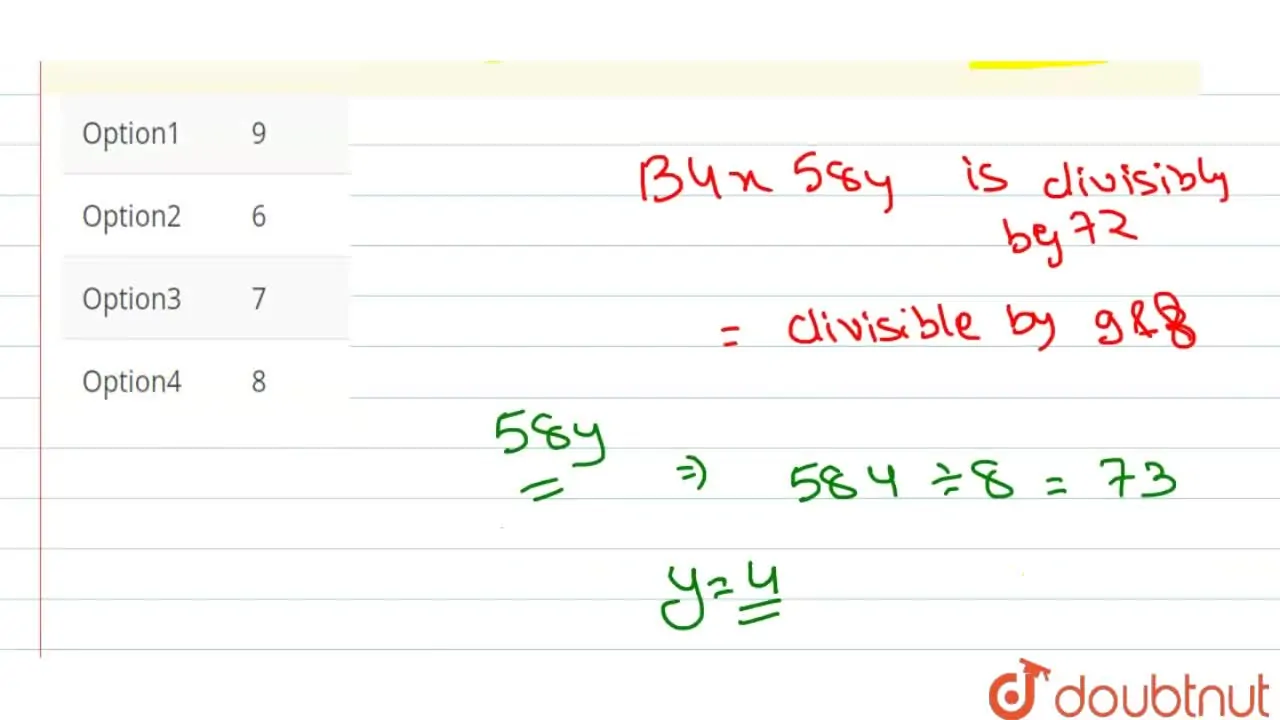 Option1 9
Option2 6
Option3 7
Option4 8
134x 58y is divisibly
by 72
= divisible by 9 & 8
58y
⇒ 584 ÷ 8 = 73
y = 4
doubtnut